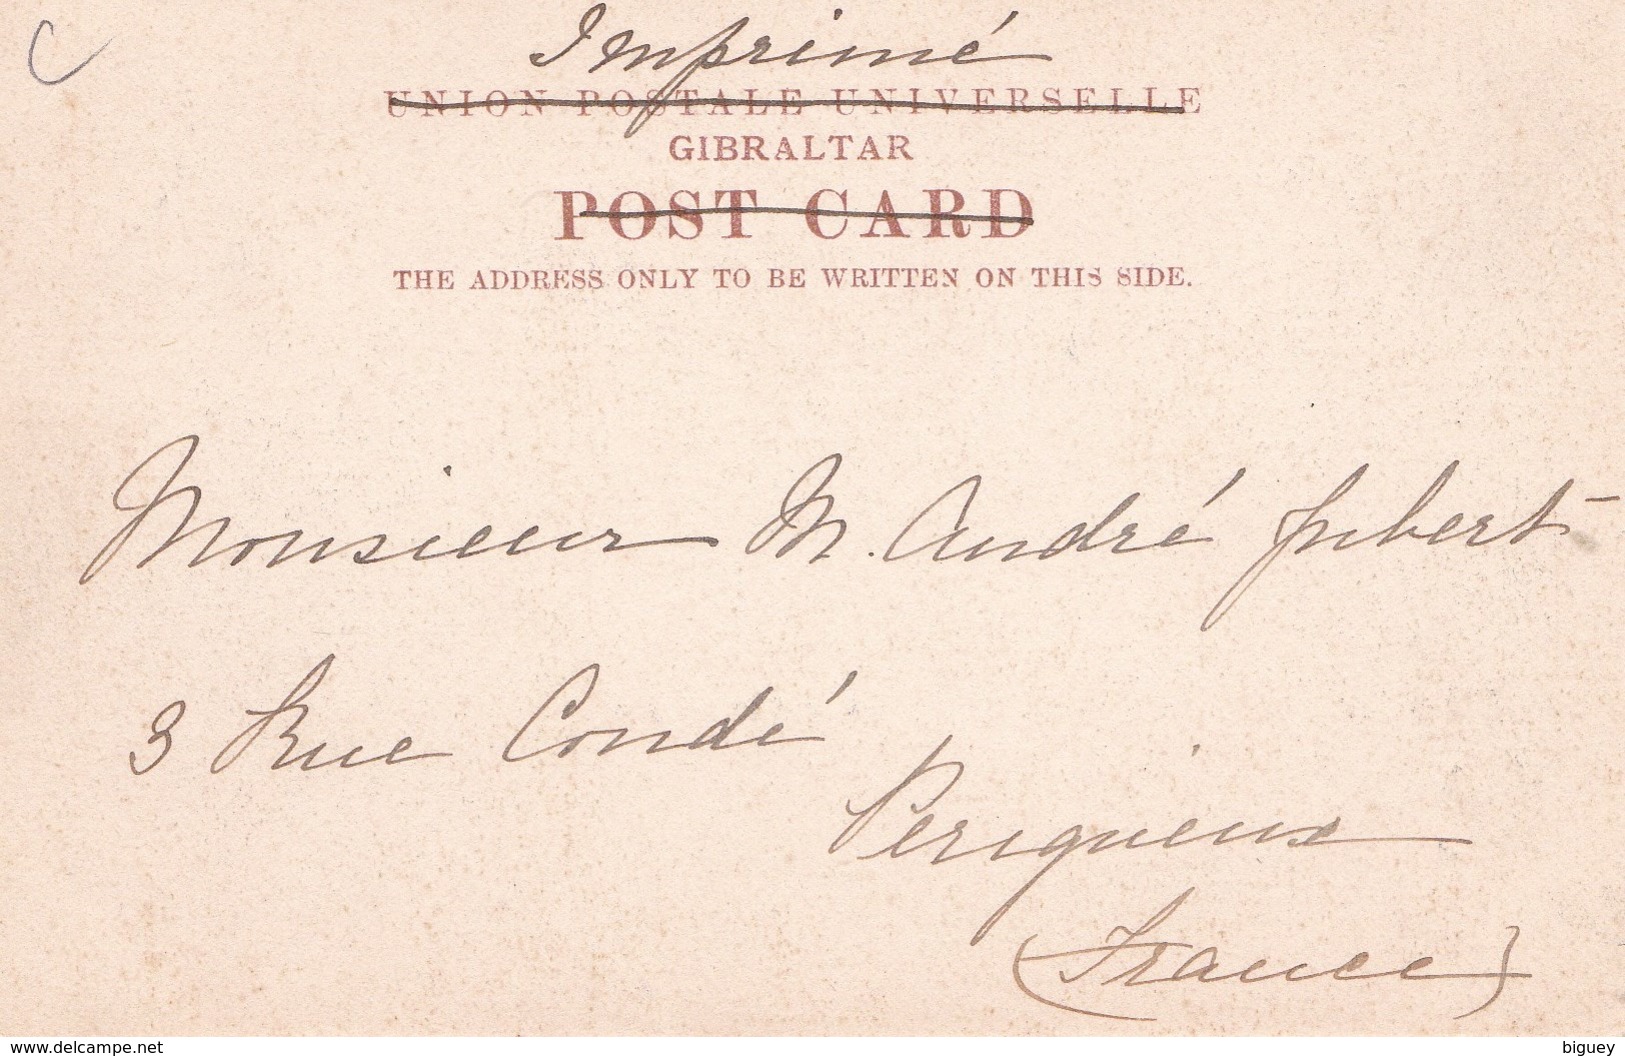 C
Imprimé
UNION POSTALE UNIVERSELLE
GIBRALTAR
POST CARD
THE ADDRESS ONLY TO BE WRITTEN ON THIS SIDE.
Monsieur M. André Jubert
3 Rue Condé
Perigueux
(France)
www.delcampe.net
biguey